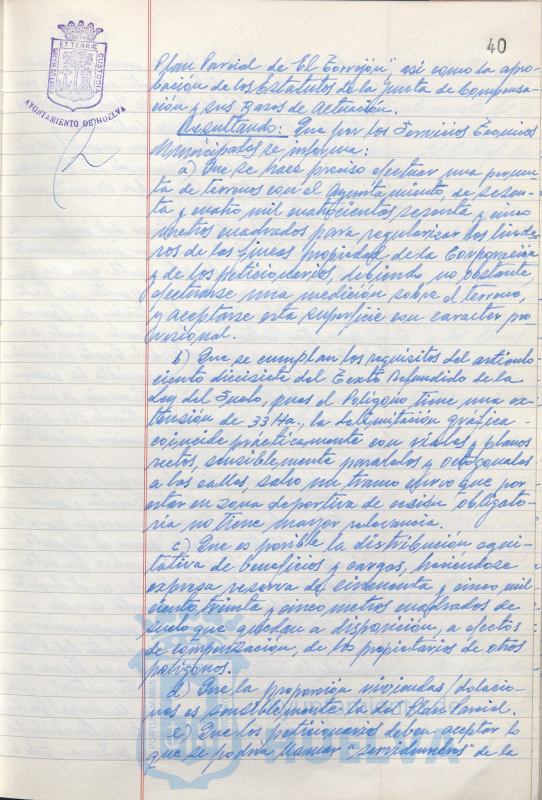 40
AYUNTAMIENTO DE HUELVA
Plan Parcial de "El Torrejón" así como la apro-
bación de los Estatutos de la Junta de Compensa-
ción y sus Bases de Actuación.
Resultando: Que por los Servicios Técnicos
Municipales se informa:
a) Que se hace preciso efectuar una permu-
ta de terrenos con el Ayuntamiento, de sesen-
ta y cuatro mil cuatrocientos sesenta y cinco
metros cuadrados para regularizar los linde-
ros de las fincas propiedad de la Corporación
y de los peticionarios, debiendo no obstante,
efectuarse una medición sobre el terreno,
y aceptarse esta superficie con caracter pro-
visional.
b) Que se cumplan los requisitos del artículo
ciento diecisiete del Texto Refundido de la
Ley del Suelo, pues el Polígono tiene una ex-
tensión de 33 Ha., la delimitación gráfica
coincide prácticamente con viales y planos
rectos, sensiblemente paralelos y octogonales
a las calles, salvo un tramo curvo que por
estar en zona deportiva de cesión obligato-
ria no tiene mayor relevancia.
c) Que es posible la distribución equi-
tativa de beneficios y cargas, haciéndose
expresa reserva de cincuenta y cinco mil
ciento treinta y cinco metros cuadrados de
suelo que quedan a disposición, a efectos
de compensación, de los propietarios de otros
polígonos.
d) Que la proporción viviendas/dotacio-
nes es sensiblemente la del Plan Parcial.
e) Que los peticionarios deben aceptar lo
que se podría llamar "servidumbres" de la